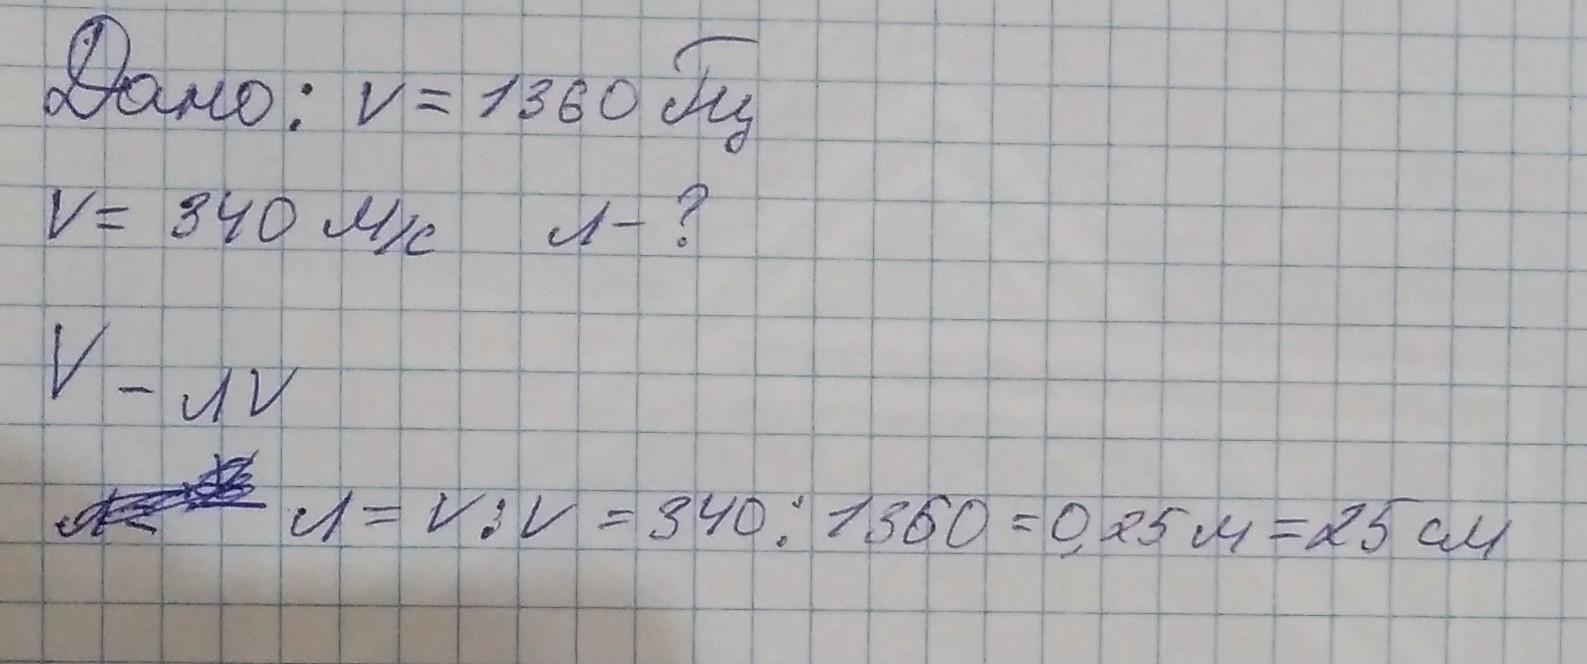 Дано: V = 1360 Гц
V = 340 м/с л - ?
V - лV
л = V : V = 340 : 1360 = 0,25 м = 25 см